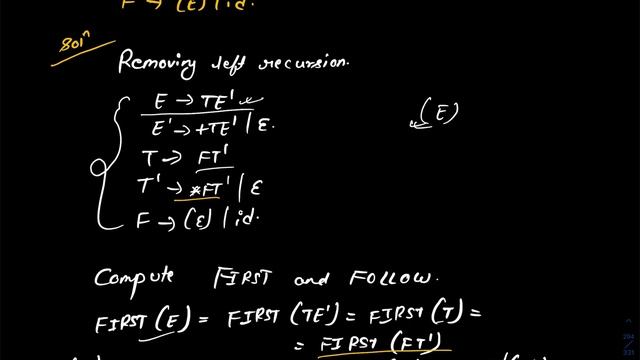 F → (E) | id.
Solⁿ
Removing left recursion.
E → TE'
E' → +TE' | ε.
(E)
T → FT'
T' → *FT' | ε
F → (E) | id.
Compute FIRST and FOLLOW.
FIRST (E) = FIRST (TE') = FIRST (T) =
= FIRST (FT')